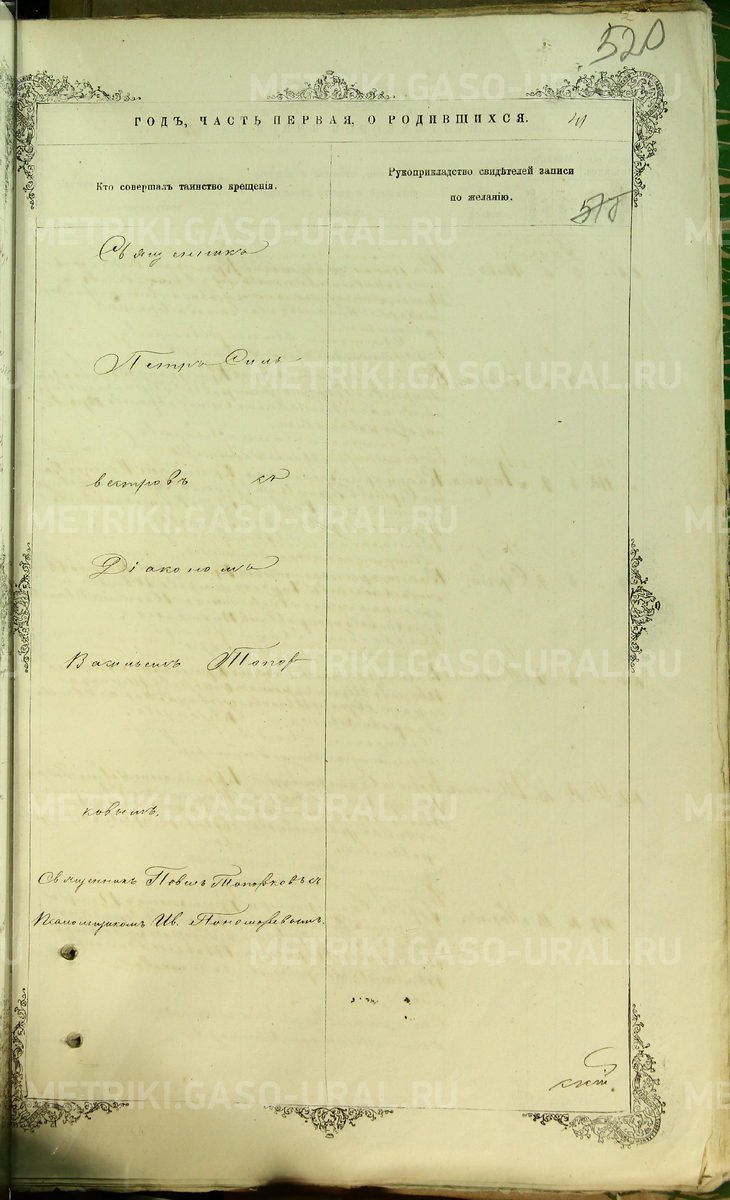 520
ГОДЪ, ЧАСТЬ ПЕРВАЯ, О РОДИВШИХСЯ.
Кто совершалъ таинство крещенія.
Рукоприкладство свидѣтелей записи
по желанію.
Священникъ
Петръ Силь
вестровъ съ
Діакономъ
Васильемъ Топор
ковымъ.
Священникъ Павелъ Топорковъ съ
Псаломщикомъ Ив. Пономаревымъ.
METRIKI.GASO-URAL.RU